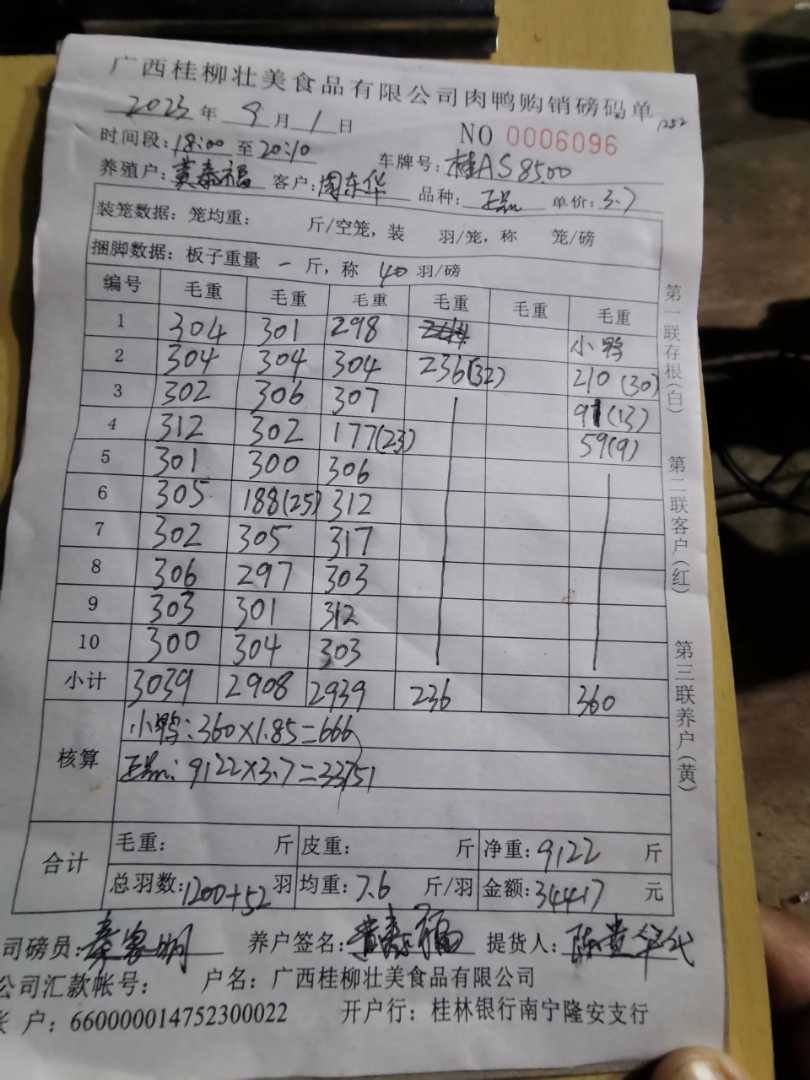 广西桂柳壮美食品有限公司肉鸭购销磅码单
1252
2023年 9月 1日 NO 0006096
时间段：18:00 至 20:10 车牌号：桂AS8500
养殖户：黄泰福 客户：周东华 品种：正品 单价：3.7
装笼数据：笼均重： 斤/空笼，装 羽/笼，称 笼/磅
捆脚数据：板子重量 一 斤，称 40 羽/磅
编号 毛重 毛重 毛重 毛重 毛重 毛重
1 304 301 298 小鸭
2 304 304 304 236(32) 210(30)
3 302 306 307 91(13)
4 312 302 177(23) 59(9)
5 301 300 306
6 305 188(25) 312
7 302 305 317
8 306 297 303
9 303 301 312
10 300 304 303
小计 3039 2908 2939 236 360
核算 小鸭：360×1.85=666
正品：9122×3.7=33751
合计 毛重： 斤 皮重： 斤 净重：9122 斤
总羽数：1200+52 羽 均重：7.6 斤/羽 金额：34417 元
司磅员： 养户签名：黄泰福 提货人：
公司汇款帐号： 户名：广西桂柳壮美食品有限公司
户：660000014752300022 开户行：桂林银行南宁隆安支行
第一联存根(白) 第二联客户(红) 第三联养户(黄)